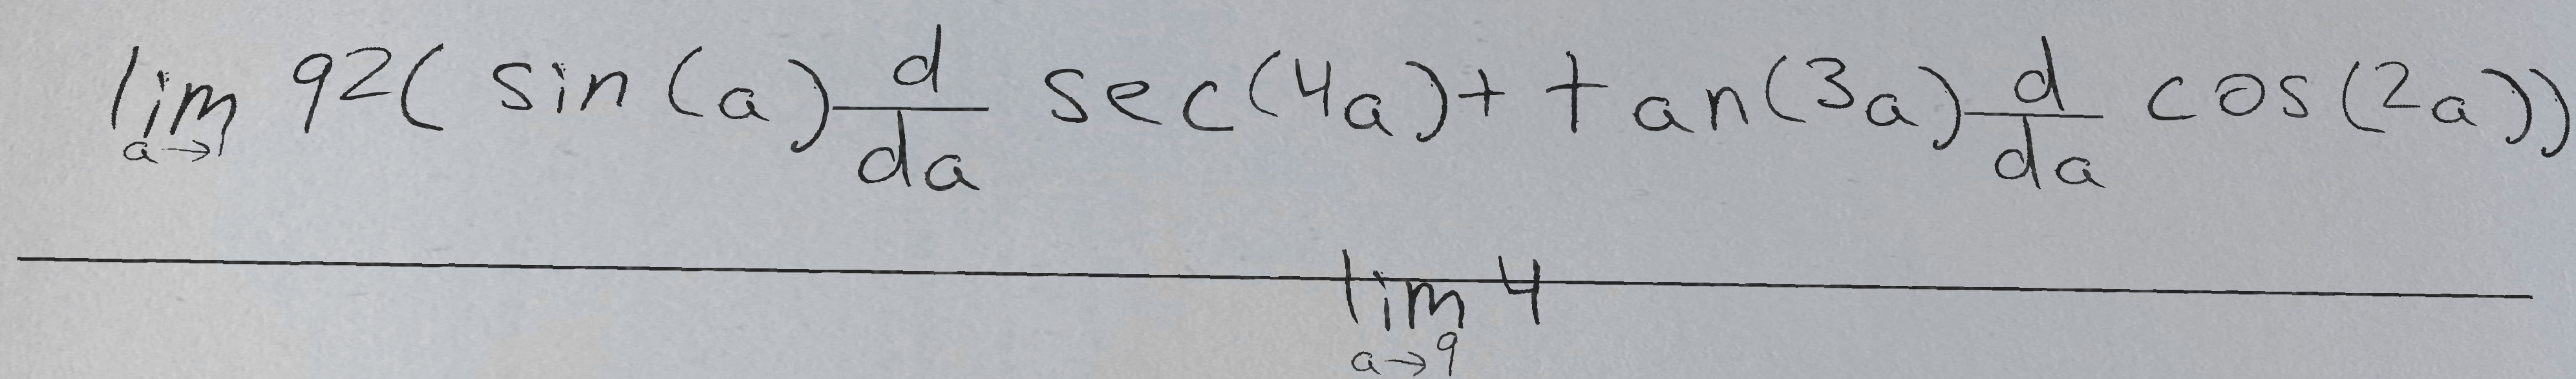 lim_{a→1} 92(sin(a) \frac{d}{da} sec(4a) + tan(3a) \frac{d}{da} cos(2a))
lim_{a→9} 4